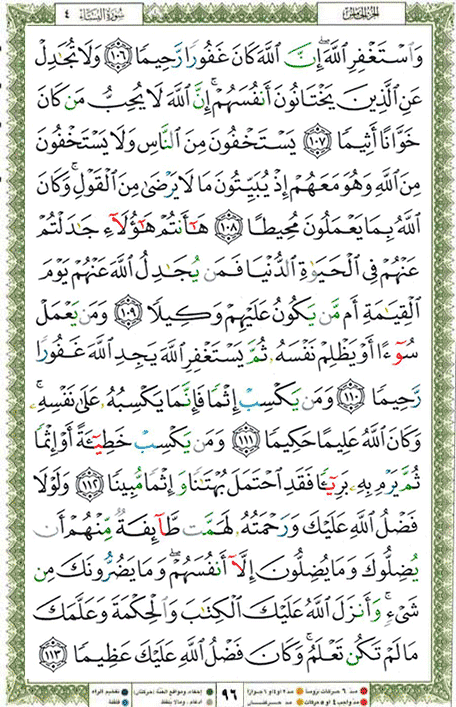 سُورَةُ النِّسَاءِ ٤
وَاسْتَغْفِرِ اللَّهَ ۖ إِنَّ اللَّهَ كَانَ غَفُورًا رَّحِيمًا ﴿١٠٦﴾ وَلَا تُجَادِلْ
عَنِ الَّذِينَ يَخْتَانُونَ أَنفُسَهُمْ ۚ إِنَّ اللَّهَ لَا يُحِبُّ مَن كَانَ
خَوَّانًا أَثِيمًا ﴿١٠٧﴾ يَسْتَخْفُونَ مِنَ النَّاسِ وَلَا يَسْتَخْفُونَ
مِنَ اللَّهِ وَهُوَ مَعَهُمْ إِذْ يُبَيِّتُونَ مَا لَا يَرْضَىٰ مِنَ الْقَوْلِ ۚ وَكَانَ
اللَّهُ بِمَا يَعْمَلُونَ مُحِيطًا ﴿١٠٨﴾ هَٰٓأَنتُمْ هَٰٓؤُلَآءِ جَٰدَلْتُمْ
عَنْهُمْ فِي الْحَيَوٰةِ الدُّنْيَا فَمَن يُجَٰدِلُ اللَّهَ عَنْهُمْ يَوْمَ
الْقِيَٰمَةِ أَم مَّن يَكُونُ عَلَيْهِمْ وَكِيلًا ﴿١٠٩﴾ وَمَن يَعْمَلْ
سُوٓءًا أَوْ يَظْلِمْ نَفْسَهُ ثُمَّ يَسْتَغْفِرِ اللَّهَ يَجِدِ اللَّهَ غَفُورًا
رَّحِيمًا ﴿١١٠﴾ وَمَن يَكْسِبْ إِثْمًا فَإِنَّمَا يَكْسِبُهُ عَلَىٰ نَفْسِهِ ۚ
وَكَانَ اللَّهُ عَلِيمًا حَكِيمًا ﴿١١١﴾ وَمَن يَكْسِبْ خَطِيٓـَٔةً أَوْ إِثْمًا
ثُمَّ يَرْمِ بِهِ بَرِيٓـًٔا فَقَدِ احْتَمَلَ بُهْتَٰنًا وَإِثْمًا مُّبِينًا ﴿١١٢﴾ وَلَوْلَا
فَضْلُ اللَّهِ عَلَيْكَ وَرَحْمَتُهُ لَهَمَّت طَّآئِفَةٌ مِّنْهُمْ أَن
يُضِلُّوكَ وَمَا يُضِلُّونَ إِلَّآ أَنفُسَهُمْ ۖ وَمَا يَضُرُّونَكَ مِن
شَيْءٍ ۚ وَأَنزَلَ اللَّهُ عَلَيْكَ الْكِتَٰبَ وَالْحِكْمَةَ وَعَلَّمَكَ
مَا لَمْ تَكُن تَعْلَمُ ۚ وَكَانَ فَضْلُ اللَّهِ عَلَيْكَ عَظِيمًا ﴿١١٣﴾
٩٦